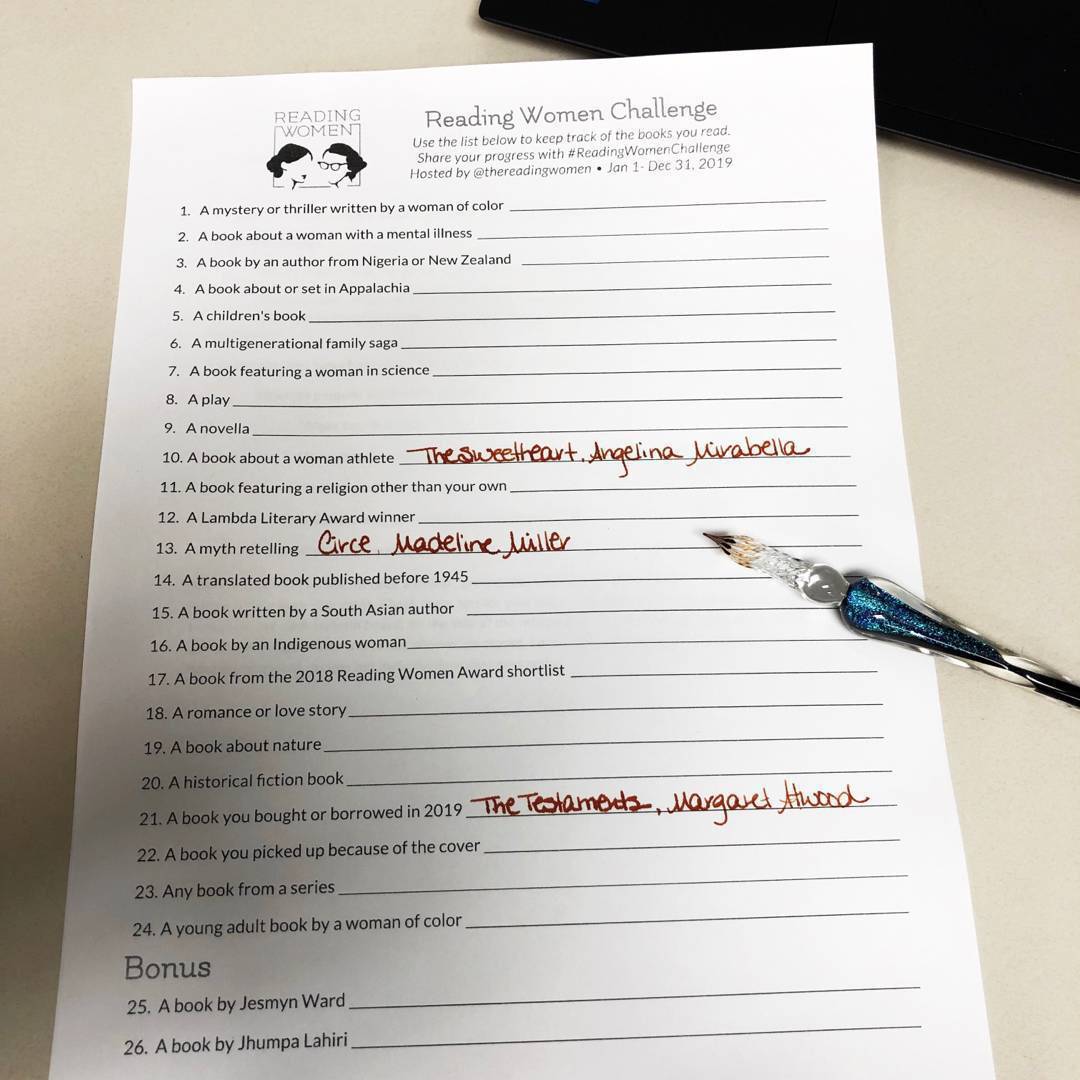 READING
WOMEN
Reading Women Challenge
Use the list below to keep track of the books you read.
Share your progress with #ReadingWomenChallenge
Hosted by @thereadingwomen • Jan 1- Dec 31, 2019
1. A mystery or thriller written by a woman of color
2. A book about a woman with a mental illness
3. A book by an author from Nigeria or New Zealand
4. A book about or set in Appalachia
5. A children's book
6. A multigenerational family saga
7. A book featuring a woman in science
8. A play
9. A novella
10. A book about a woman athlete The Sweetheart, Angelina Mirabella
11. A book featuring a religion other than your own
12. A Lambda Literary Award winner
13. A myth retelling Circe, Madeline Miller
14. A translated book published before 1945
15. A book written by a South Asian author
16. A book by an Indigenous woman
17. A book from the 2018 Reading Women Award shortlist
18. A romance or love story
19. A book about nature
20. A historical fiction book
21. A book you bought or borrowed in 2019 The Testaments, Margaret Atwood
22. A book you picked up because of the cover
23. Any book from a series
24. A young adult book by a woman of color
Bonus
25. A book by Jesmyn Ward
26. A book by Jhumpa Lahiri